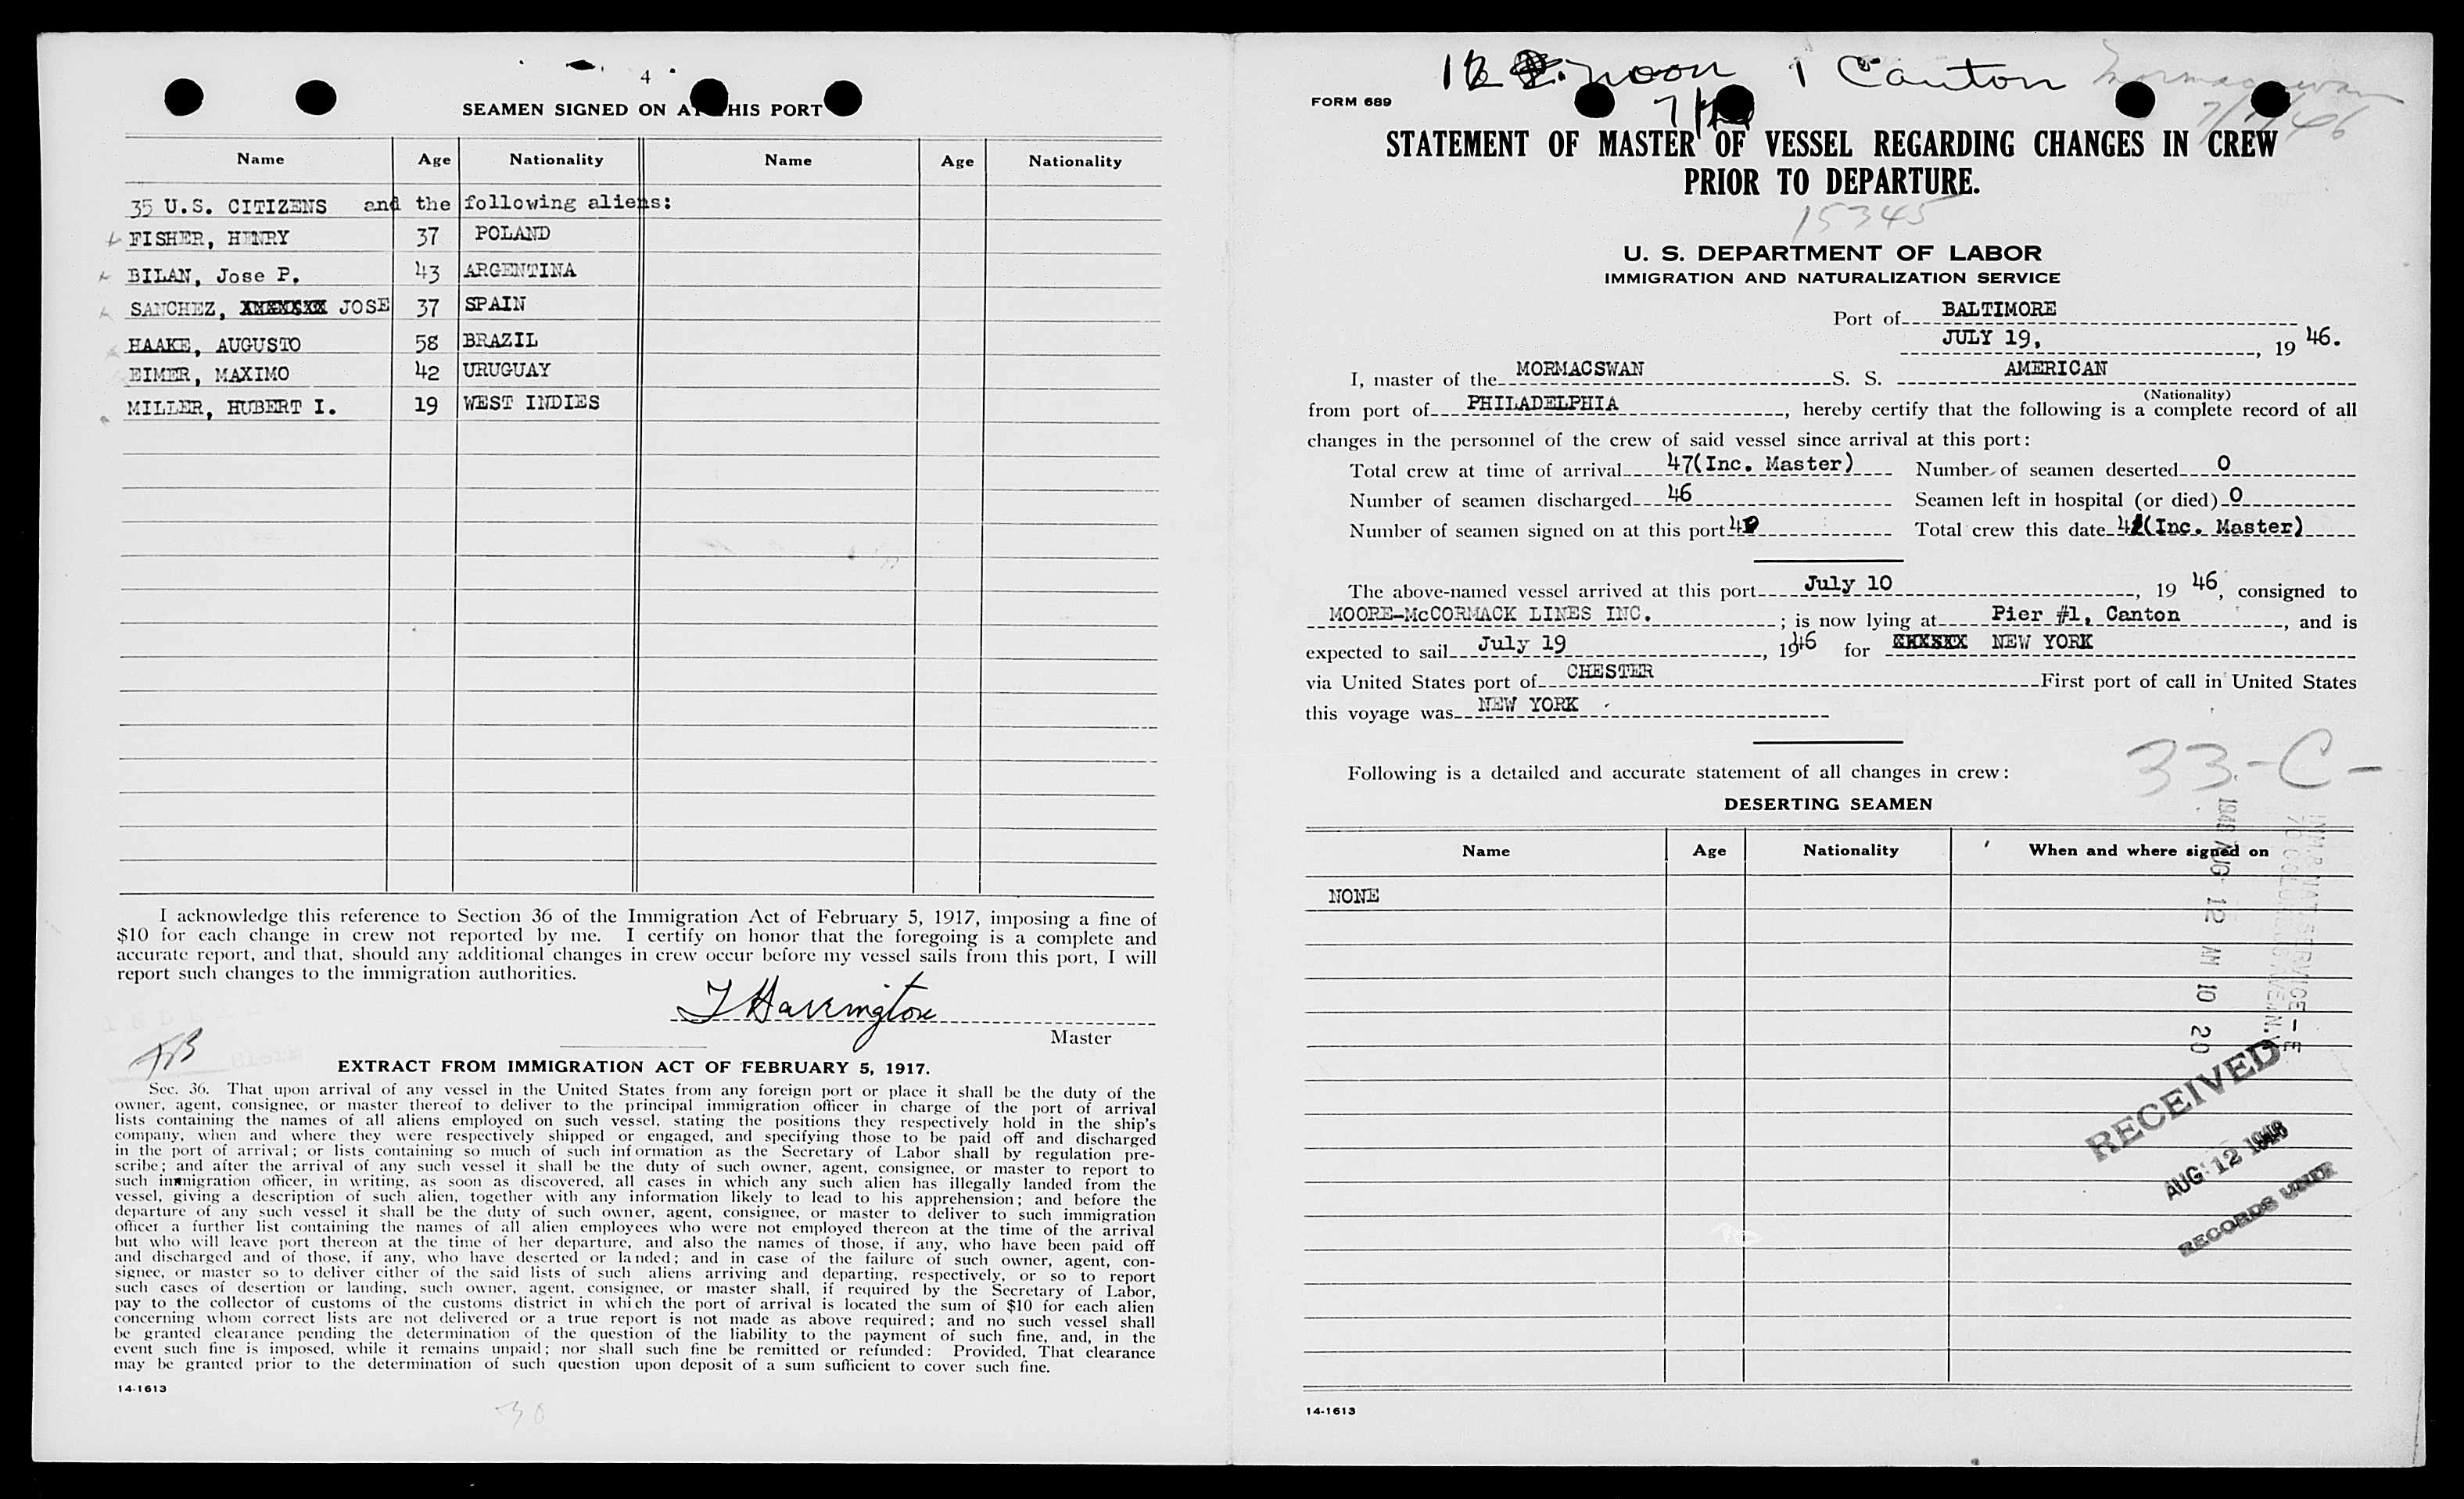 4
SEAMEN SIGNED ON AT THIS PORT
Name Age Nationality Name Age Nationality
35 U.S. CITIZENS and the following aliens:
FISHER, HENRY 37 POLAND
BILAN, Jose P. 43 ARGENTINA
SANCHEZ, JOSE 37 SPAIN
HAAKE, AUGUSTO 58 BRAZIL
EIMER, MAXIMO 42 URUGUAY
MILLER, HUBERT I. 19 WEST INDIES
I acknowledge this reference to Section 36 of the Immigration Act of February 5, 1917, imposing a fine of
$10 for each change in crew not reported by me. I certify on honor that the foregoing is a complete and
accurate report, and that, should any additional changes in crew occur before my vessel sails from this port, I will
report such changes to the immigration authorities.
J Harrington
Master
EXTRACT FROM IMMIGRATION ACT OF FEBRUARY 5, 1917.
Sec. 36. That upon arrival of any vessel in the United States from any foreign port or place it shall be the duty of the
owner, agent, consignee, or master thereof to deliver to the principal immigration officer in charge of the port of arrival
lists containing the names of all aliens employed on such vessel, stating the positions they respectively hold in the ship's
company, when and where they were respectively shipped or engaged, and specifying those to be paid off and discharged
in the port of arrival; or lists containing so much of such information as the Secretary of Labor shall by regulation pre-
scribe; and after the arrival of any such vessel it shall be the duty of such owner, agent, consignee, or master to report to
such immigration officer, in writing, as soon as discovered, all cases in which any such alien has illegally landed from the
vessel, giving a description of such alien, together with any information likely to lead to his apprehension; and before the
departure of any such vessel it shall be the duty of such owner, agent, consignee, or master to deliver to such immigration
officer a further list containing the names of all alien employees who were not employed thereon at the time of the arrival
but who will leave port thereon at the time of her departure, and also the names of those, if any, who have been paid off
and discharged and of those, if any, who have deserted or landed; and in case of the failure of such owner, agent, con-
signee, or master so to deliver either of the said lists of such aliens arriving and departing, respectively, or so to report
such cases of desertion or landing, such owner, agent, consignee, or master shall, if required by the Secretary of Labor,
pay to the collector of customs of the customs district in which the port of arrival is located the sum of $10 for each alien
concerning whom correct lists are not delivered or a true report is not made as above required; and no such vessel shall
be granted clearance pending the determination of the question of the liability to the payment of such fine, and, in the
event such fine is imposed, while it remains unpaid; nor shall such fine be remitted or refunded: Provided, That clearance
may be granted prior to the determination of such question upon deposit of a sum sufficient to cover such fine.
14-1613
30
12 noon 1 Canton Mormacswan
7/19/46
FORM 689
STATEMENT OF MASTER OF VESSEL REGARDING CHANGES IN CREW
PRIOR TO DEPARTURE.
15345
U. S. DEPARTMENT OF LABOR
IMMIGRATION AND NATURALIZATION SERVICE
Port of BALTIMORE
JULY 19, 19 46.
I, master of the MORMACSWAN S. S. AMERICAN
(Nationality)
from port of PHILADELPHIA, hereby certify that the following is a complete record of all
changes in the personnel of the crew of said vessel since arrival at this port:
Total crew at time of arrival 47(Inc. Master) Number of seamen deserted 0
Number of seamen discharged 46 Seamen left in hospital (or died) 0
Number of seamen signed on at this port Total crew this date (Inc. Master)
The above-named vessel arrived at this port July 10, 19 46, consigned to
MOORE-McCORMACK LINES INC.; is now lying at Pier #1, Canton, and is
expected to sail July 19, 1946 for NEW YORK
via United States port of CHESTER First port of call in United States
this voyage was NEW YORK
33-C-
Following is a detailed and accurate statement of all changes in crew:
DESERTING SEAMEN
Name Age Nationality When and where signed on
NONE
1946 AUG 12 AM 10 20
RECEIVED
AUG 12 1946
RECORDS UNIT
14-1613